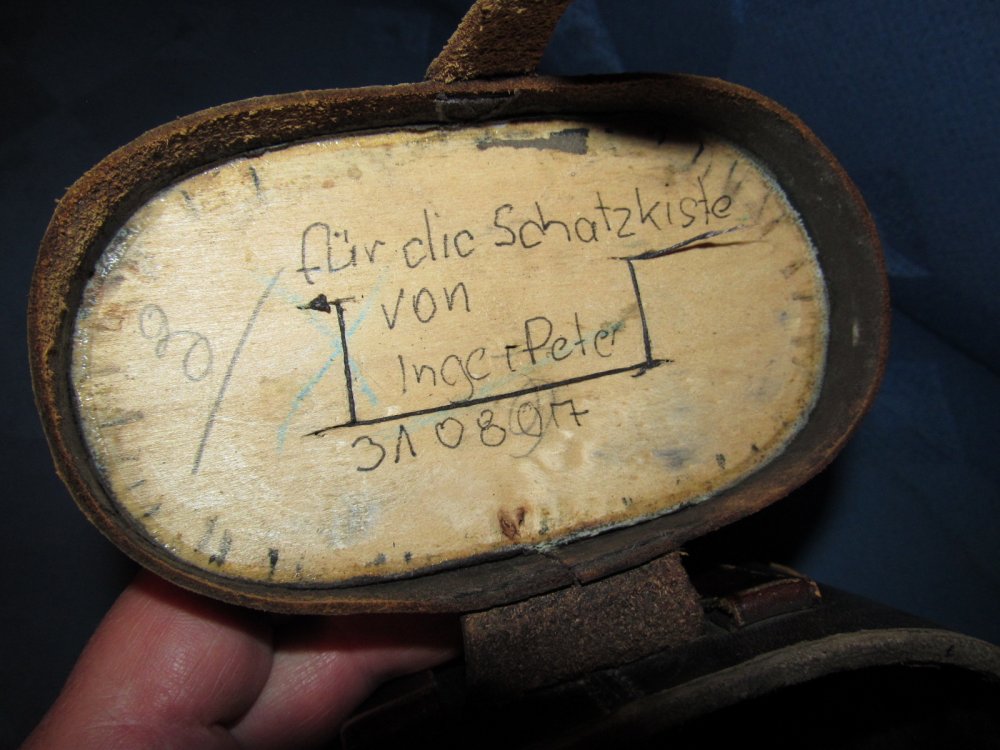 für die Schatzkiste
von
Inge + Peter
310897